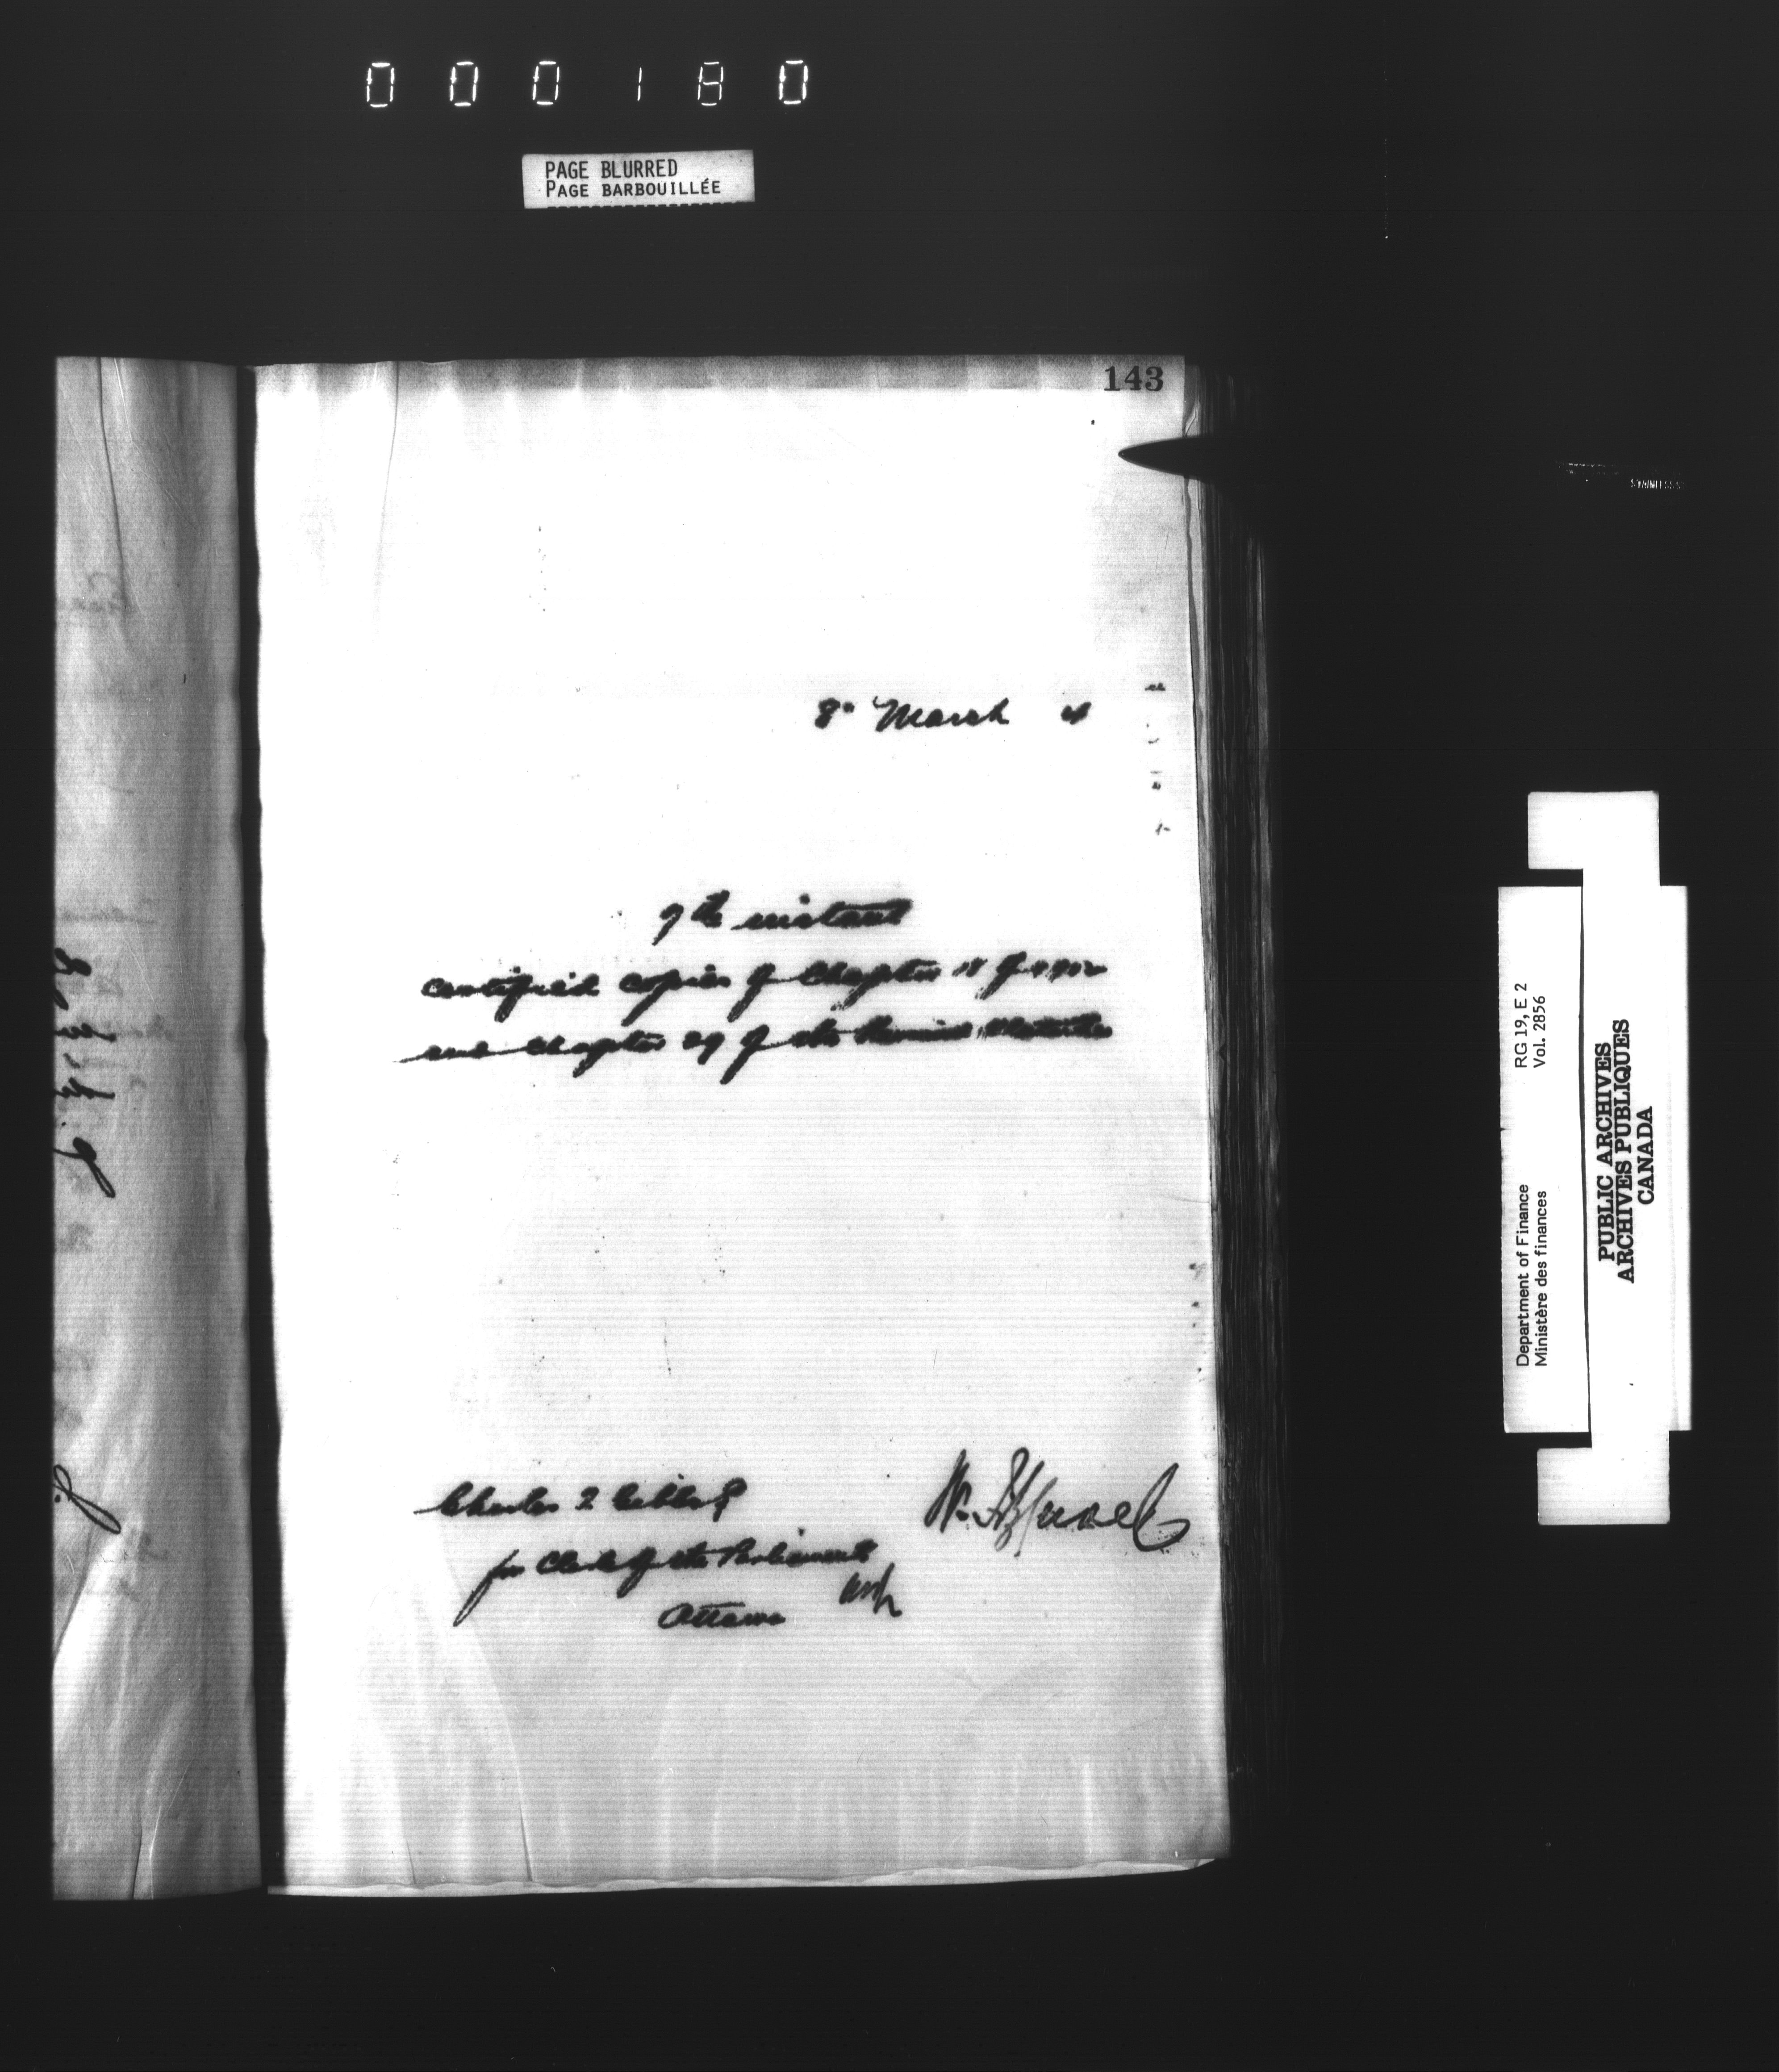 000180
PAGE BLURRED
PAGE BARBOUILLÉE
143
8th March 4
7th instant
certified copies of Chapter 18 of 1902
and Chapter 29 of the Revised Statutes
Charles
for Clerk of the Parliament
Ottawa
RG 19, E 2
Vol. 2856
Department of Finance
Ministère des finances
PUBLIC ARCHIVES
ARCHIVES PUBLIQUES
CANADA